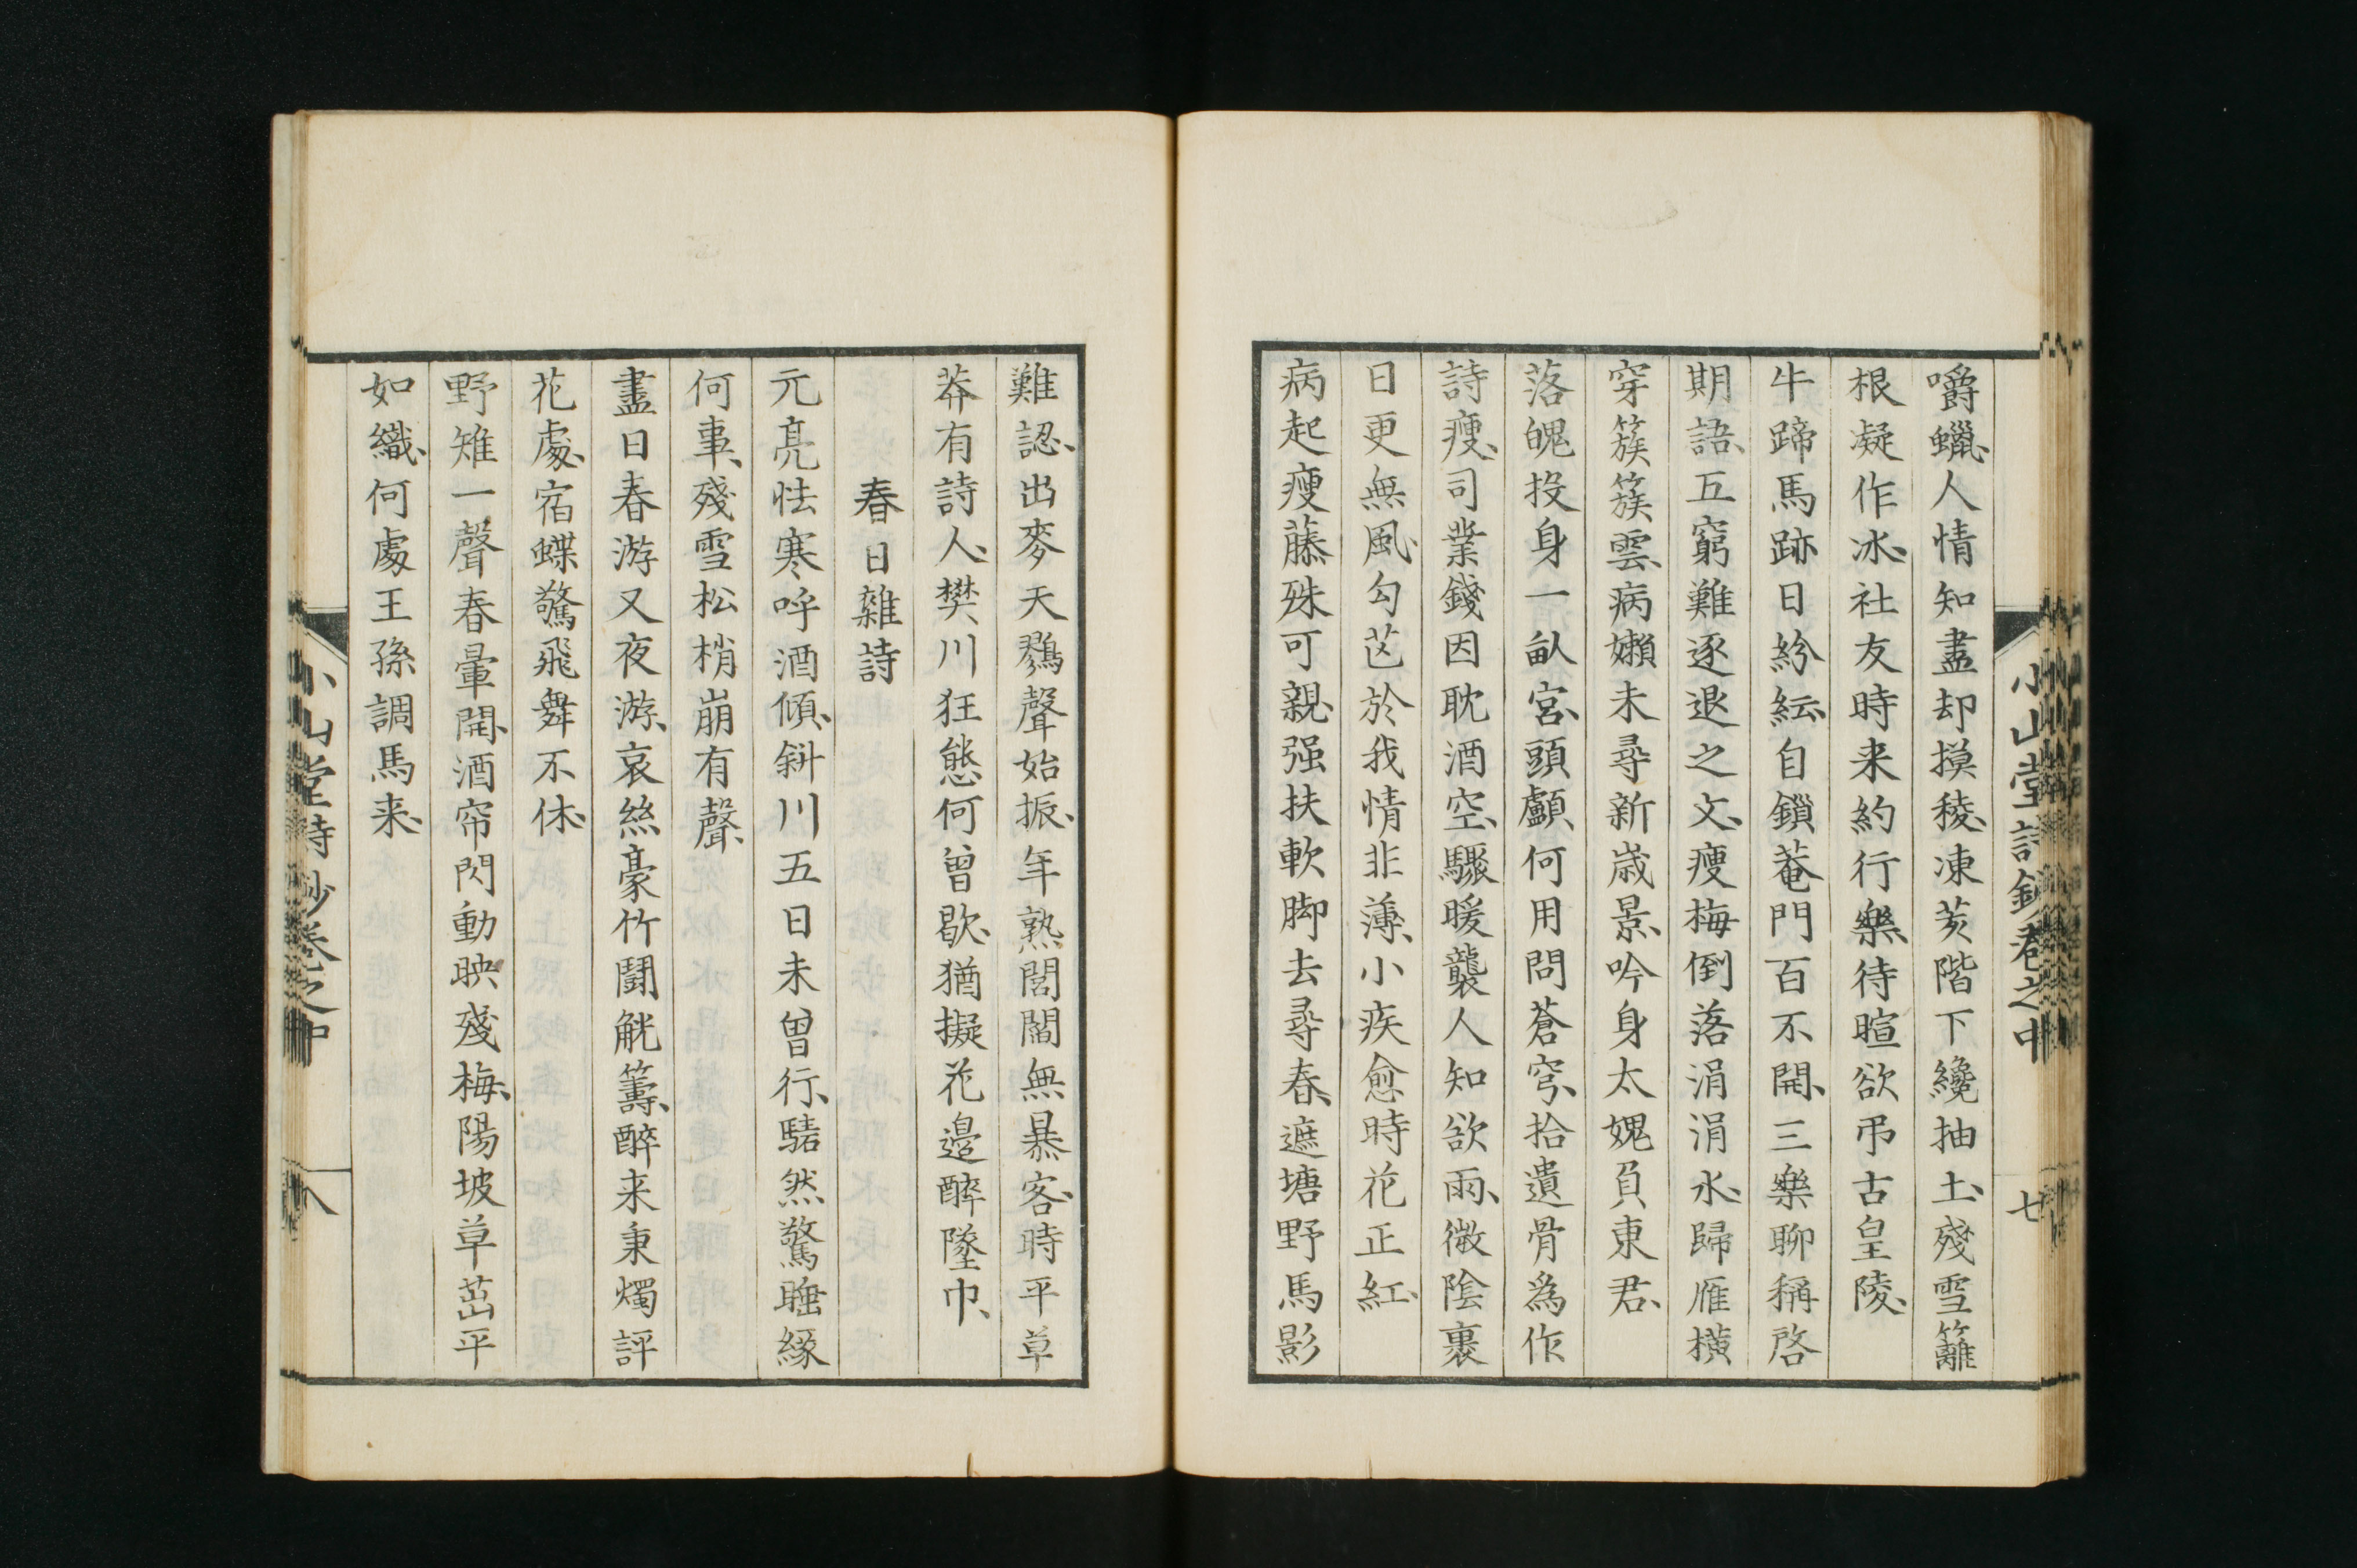 小山堂詩鈔卷之中
七
嚼蠟、人情知盡却摸稜、凍芡階下纔抽土、殘雪籬
根凝作冰、社友時来約行樂、待暄欲弔古皇陵、
牛蹄馬跡日紛紜、自鎖菴門百不開、三樂聊稱啓
期語、五窮難逐退之文、瘦梅倒落涓涓水、歸雁橫
穿簇簇雲、病嬾未尋新歲景、吟身太媿負東君、
落魄投身一畝宮、頭顱何用問蒼穹、拾遺骨為作
詩瘦、司業錢因耽酒空、驟暖襲人知欲雨、微陰裹
日更無風、勾芒於我情非薄、小疾愈時花正紅、
病起瘦藤殊可親、强扶軟脚去尋春、遮塘野馬影
難認、出麥天鷚聲始振、年熟閭閻無暴客、時平草
莽有詩人、樊川狂態何曾歇、猶擬花邊醉墜巾、
春日雜詩
元亮怯寒呼酒傾、斜川五日未曾行、騞然驚睡緣
何事、殘雪松梢崩有聲、
盡日春游又夜游、哀絲豪竹鬪觥籌、醉来秉燭評
花處、宿蝶驚飛舞不休、
野雉一聲春暈開、酒帘閃動映殘梅、陽坡草茁平
如織、何處王孫調馬来、
小山堂詩鈔卷之中
八